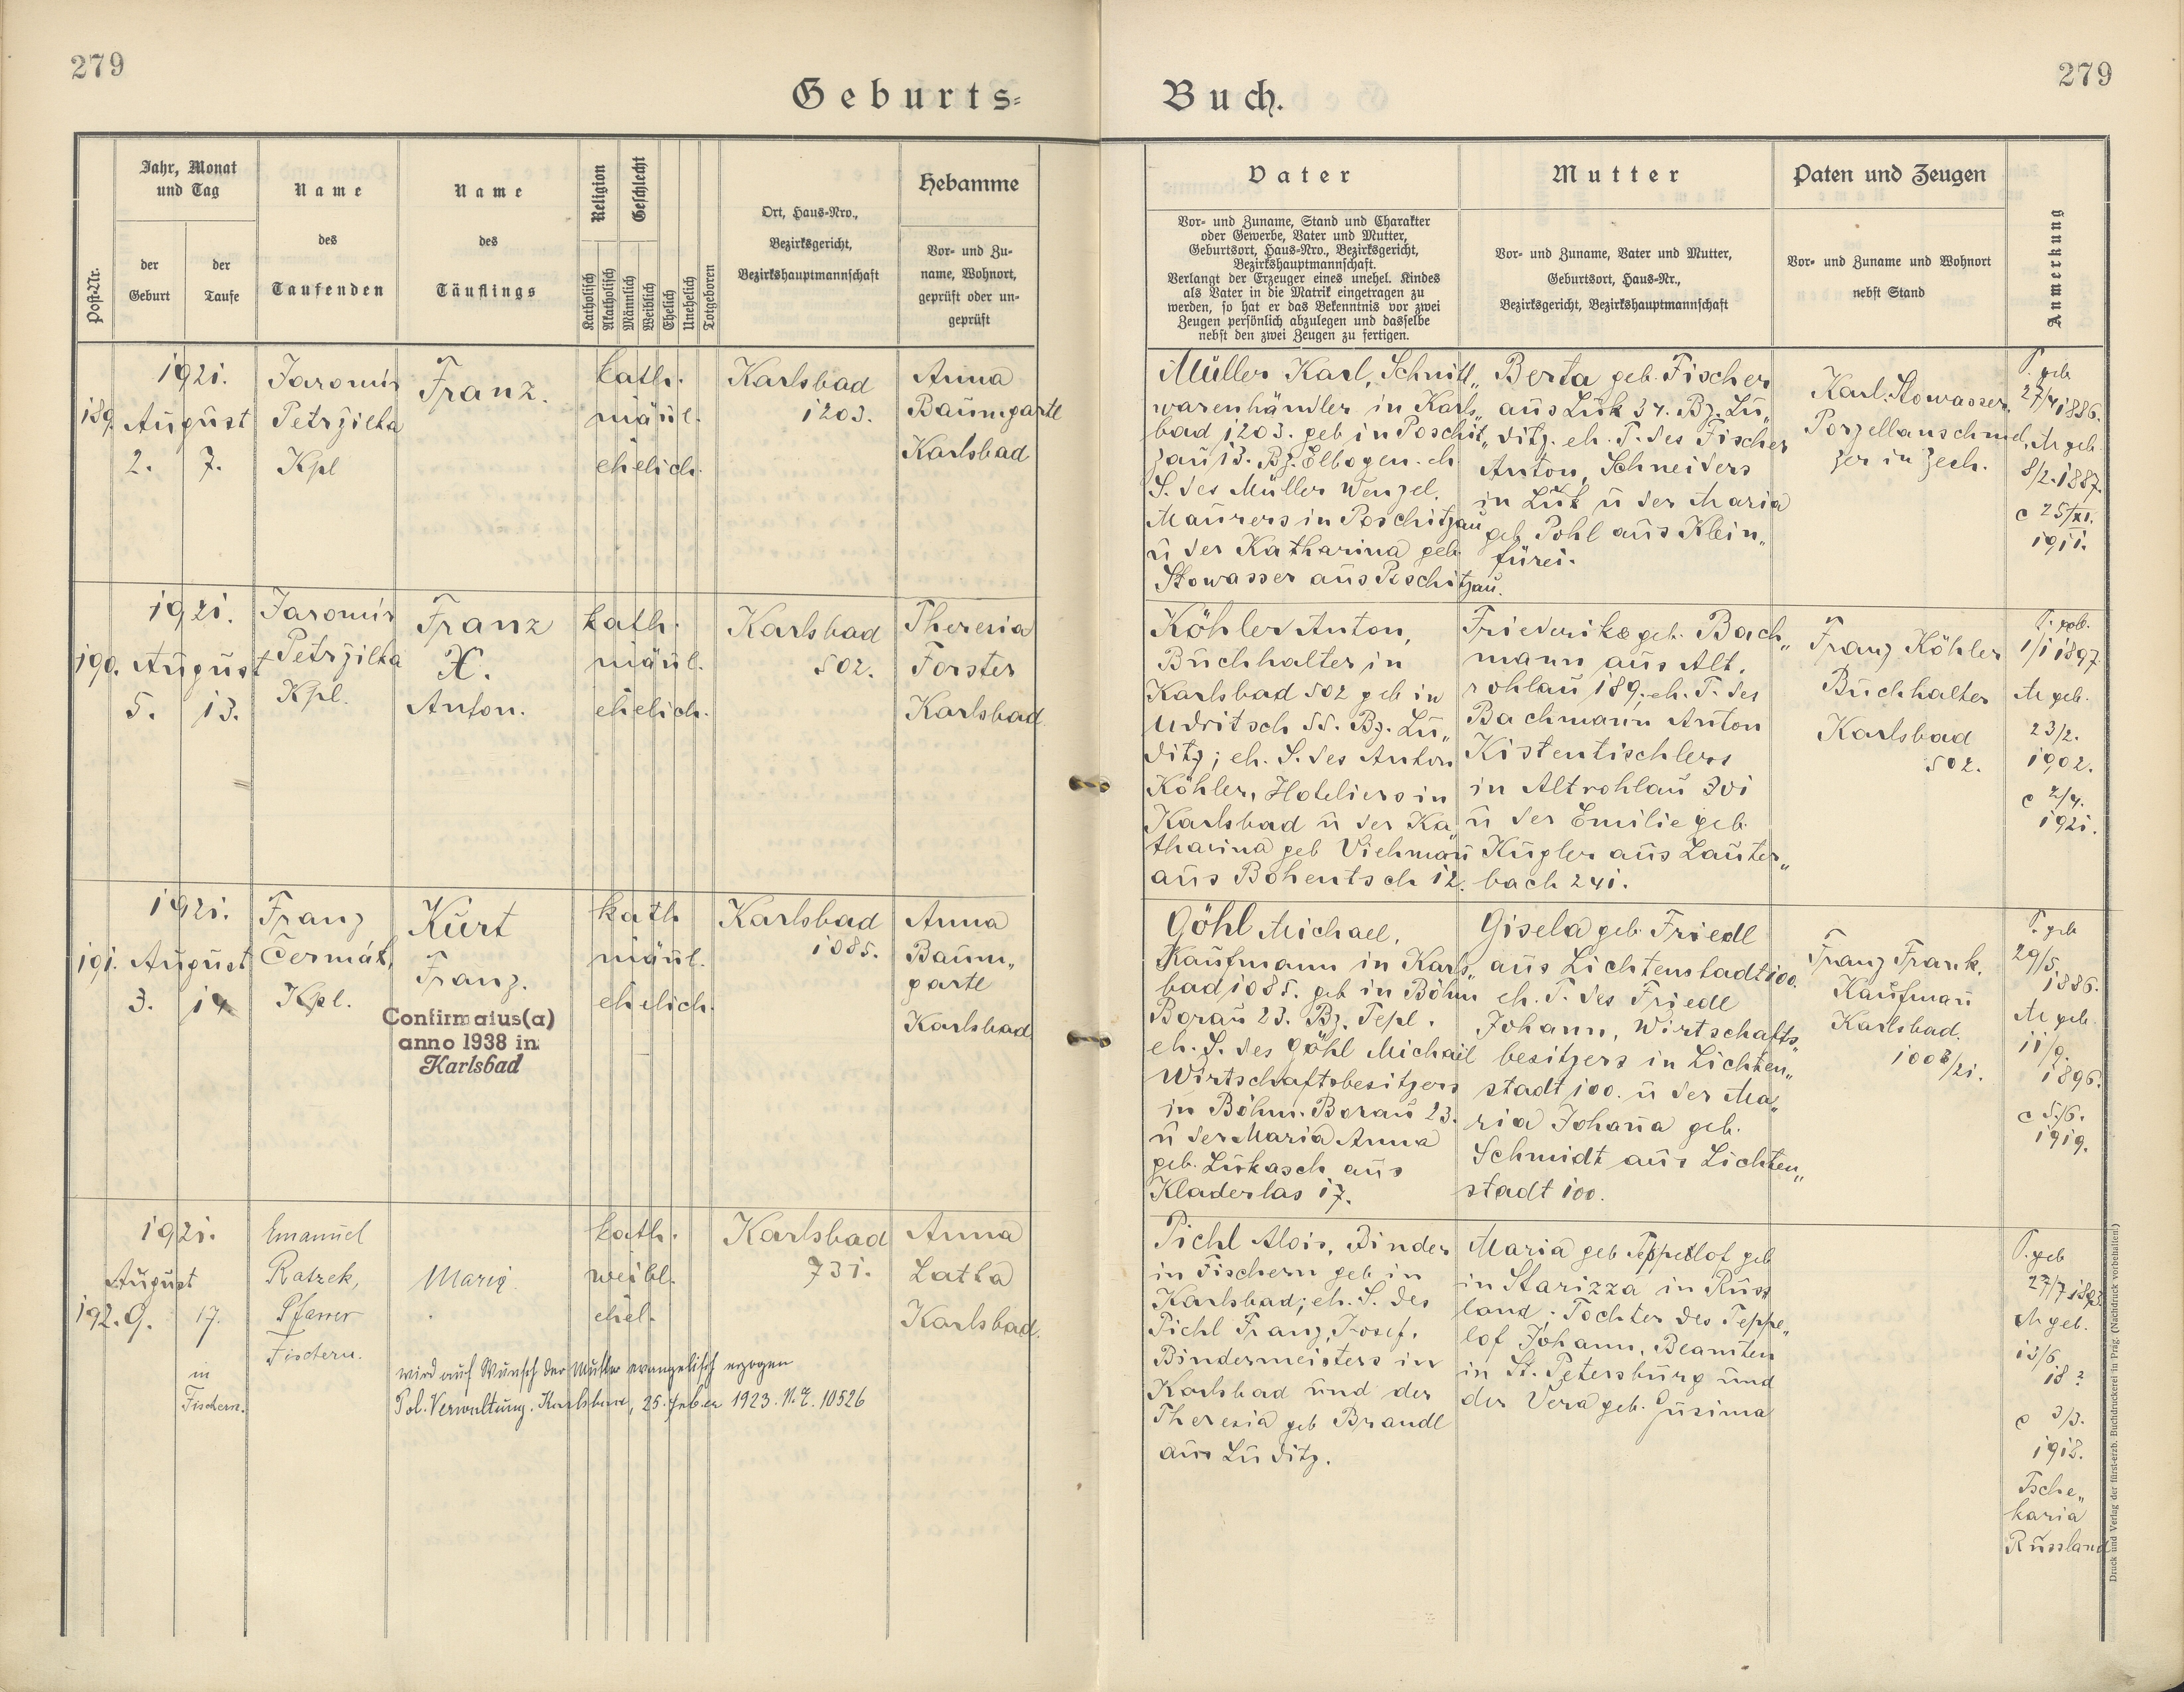 279
Geburts-
Post-Nr.
Jahr, Monat
und Tag
der
Geburt
der
Taufe
Name
des
Taufenden
Name
des
Täuflings
Religion
Katholisch
Akatholisch
Geschlecht
Männlich
Weiblich
Ehelich
Unehelich
Totgeboren
Ort, Haus-Nro.,
Bezirksgericht,
Bezirkshauptmannschaft
Hebamme
Vor- und Zu-
name, Wohnort,
geprüft oder un-
geprüft
189.
1921.
August
2. 7.
Jaromír
Petržilka
Kpl
Franz.
kath.
männl.
ehelich.
Karlsbad
1203.
Anna
Baumgartl
Karlsbad
190.
1921.
August
5. 13.
Jaromír
Petržilka
Kpl.
Franz
X.
Anton.
kath.
männl.
ehelich.
Karlsbad
502.
Theresia
Forster
Karlsbad
191.
1921.
August
3. 14
Franz
Čermák,
Kpl.
Kurt
Franz.
Confirmatus(a)
anno 1938 in
Karlsbad
kath
männl.
ehelich.
Karlsbad
1085.
Anna
Baum„
gartl
Karlsbad
192.
1921.
August
9. 17.
in
Fischern.
Emanuel
Ratzek,
Pfarrer
Fischern.
Maria
kath.
weibl.
ehel.
Karlsbad
731.
Anna
Latka
Karlsbad.
wird auf Wunsch der Mutter evangelisch erzogen
Pol. Verwaltung. Karlsbad, 25. 1923. N.E. 10526
Buch.
279
Vater
Vor- und Zuname, Stand und Charakter
oder Gewerbe, Vater und Mutter,
Geburtsort, Haus-Nro., Bezirksgericht,
Bezirkshauptmannschaft.
Verlangt der Erzeuger eines unehel. Kindes
als Vater in die Matrik eingetragen zu
werden, so hat er das Bekenntnis vor zwei
Zeugen persönlich abzulegen und dasselbe
nebst den zwei Zeugen zu fertigen.
Mutter
Vor- und Zuname, Vater und Mutter,
Geburtsort, Haus-Nr.,
Bezirksgericht, Bezirkshauptmannschaft
Paten und Zeugen
Vor- und Zuname und Wohnort
nebst Stand
Anmerkung
Müller Karl, Schnitt„
warenhändler in Karls„
bad 1203. geb in Poschit„
zau 13. Bz. Elbogen. eh
S. des Müller Wenzel,
Maurers in Poschitzau
u der Katharina geb
Stowasser aus Poschitzau.
Berta geb. Fischer
aus Luk 34. Bz. Lu„
ditz. eh. T. des Fischer
Anton, Schneiders
in Luk u der Maria
geb. Pohl aus Klein„
fürei.
Karl Stowasser,
Porzellanschmel„
zer in Zech.
P. geb
27/4 1886.
M geb.
8/2. 1887.
c 25/XI.
1911.
Köhler Anton,
Buchhalter in
Karlsbad 502 geb in
Udritsch 55. Bz. Lu„
ditz; eh. S. des Anton
Köhler, Hoteliers in
Karlsbad u der Ka„
tharina geb Viehmañ
aus Bohentsch 12.
Friederike geb. Bach„
mann aus Alt.
rohlau 189; eh. T. des
Bachmann Anton
Kistentischlers
in Altrohlau 301
u der Emilie geb.
Kugler aus Lauter„
bach 241.
Franz Köhler
Buchhalter
Karlsbad
502.
P. geb.
1/1 1897.
M geb.
23/2.
1902.
c 2/4.
1921.
Göhl Michael,
Kaufmann in Karls„
bad 1085. geb in Böhm
Borau 23. Bz. Tepl.
eh. S. des Göhl Michail
Wirtschaftsbesitzers
in Böhm. Borau 23.
u der Maria Anna
geb. Lukasch aus
Kladerlas 17.
Gisela geb. Friedl
aus Lichtenstadt 100.
eh. T. des Friedl
Johann, Wirtschafts„
besitzers in Lichten„
stadt 100. u der Ma„
ria Johaña geb.
Schmidt aus Lichten„
stadt 100.
Franz Frank,
Kaufmañ
Karlsbad.
1008/21.
P. geb
29/5.
1886.
M geb.
11/9.
1896.
c 5/6.
1919.
Pichl Alois, Binder
in Fischern geb in
Karlsbad; eh. S. des
Pichl Franz, Josef,
Bindermeisters in
Karlsbad und der
Theresia geb Brandl
aus Luditz.
Maria geb Teppelof geb
in Starizza in Russ
land; Tochter des Teppe„
lof Johann, Beamten
in St. Petersburg und
der Vera geb. Gusima
P. geb
27/7 1893
M geb.
13/6.
18 ?
c 3/3.
1918.
Tsche„
karia
Russland
Druck und Verlag der fürst-erzb. Buchdruckerei in Prag. (Nachdruck vorbehalten.)